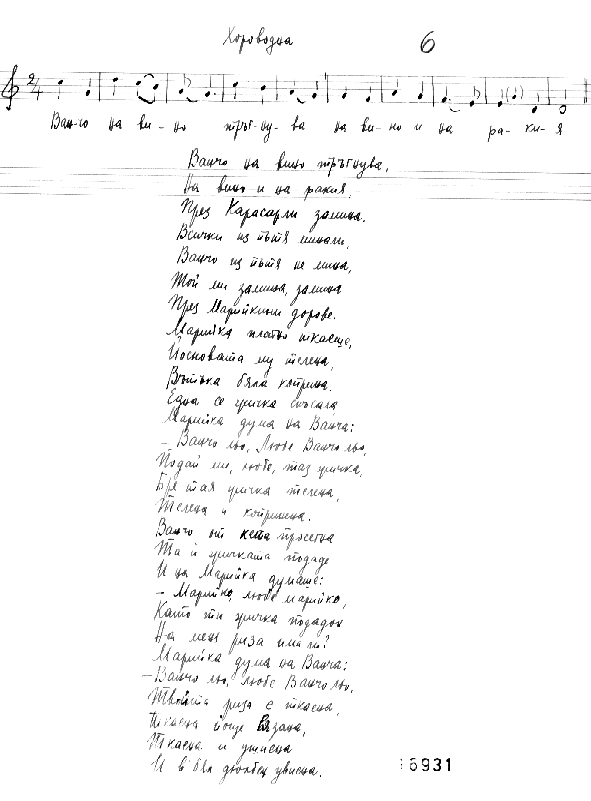 Хороводна
6
2/4
Ванчо на ви-но тръг-ну-ва на ви-но и на ра-ки-я
Ванчо на вино тръгнува,
На вино и на ракия.
През Карасарли замина.
Всички из пътя минали,
Ванчо из пътя не мина,
Той ми замина, замина
През Марийкини дорове.
Марийка платно ткаеше,
Йосновата му телена,
Вътъка бяла коприна.
Една се жичка скъсала,
Марийка дума на Ванча:
- Ванчо льо, Любе Ванчо льо,
Подай ми, любе, таз жичка,
Бре тая жичка телена,
Телена и копринена.
Ванчо от кета просегна
Та ѝ жичката подаде
И на Марийка думаше:
- Марийко, любе Марийко,
Като ти жичка подадох
На мене риза има ли?
Марийка дума на Ванча:
- Ванчо льо, любе Ванчо льо,
Твойта риза е ткаена,
Ткаена йоще вязана,
Ткаена и ушиена
И в бял дюлбен увиена.
6931